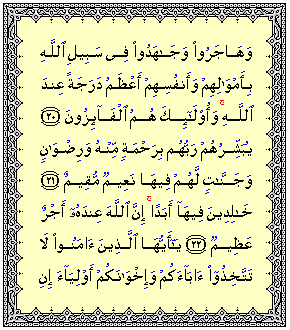 وَهَاجَرُوا۟ وَجَـٰهَدُوا۟ فِى سَبِيلِ ٱللَّهِ
بِأَمْوَٰلِهِمْ وَأَنفُسِهِمْ أَعْظَمُ دَرَجَةً عِندَ
ٱللَّهِ ۚ وَأُو۟لَـٰٓئِكَ هُمُ ٱلْفَآئِزُونَ ﴿٢٠﴾
يُبَشِّرُهُمْ رَبُّهُم بِرَحْمَةٍ مِّنْهُ وَرِضْوَٰنٍ
وَجَنَّـٰتٍ لَّهُمْ فِيهَا نَعِيمٌ مُّقِيمٌ ﴿٢١﴾
خَـٰلِدِينَ فِيهَآ أَبَدًا ۚ إِنَّ ٱللَّهَ عِندَهُۥٓ أَجْرٌ
عَظِيمٌ ﴿٢٢﴾ يَـٰٓأَيُّهَا ٱلَّذِينَ ءَامَنُوا۟ لَا
تَتَّخِذُوٓا۟ ءَابَآءَكُمْ وَإِخْوَٰنَكُمْ أَوْلِيَآءَ إِنِ